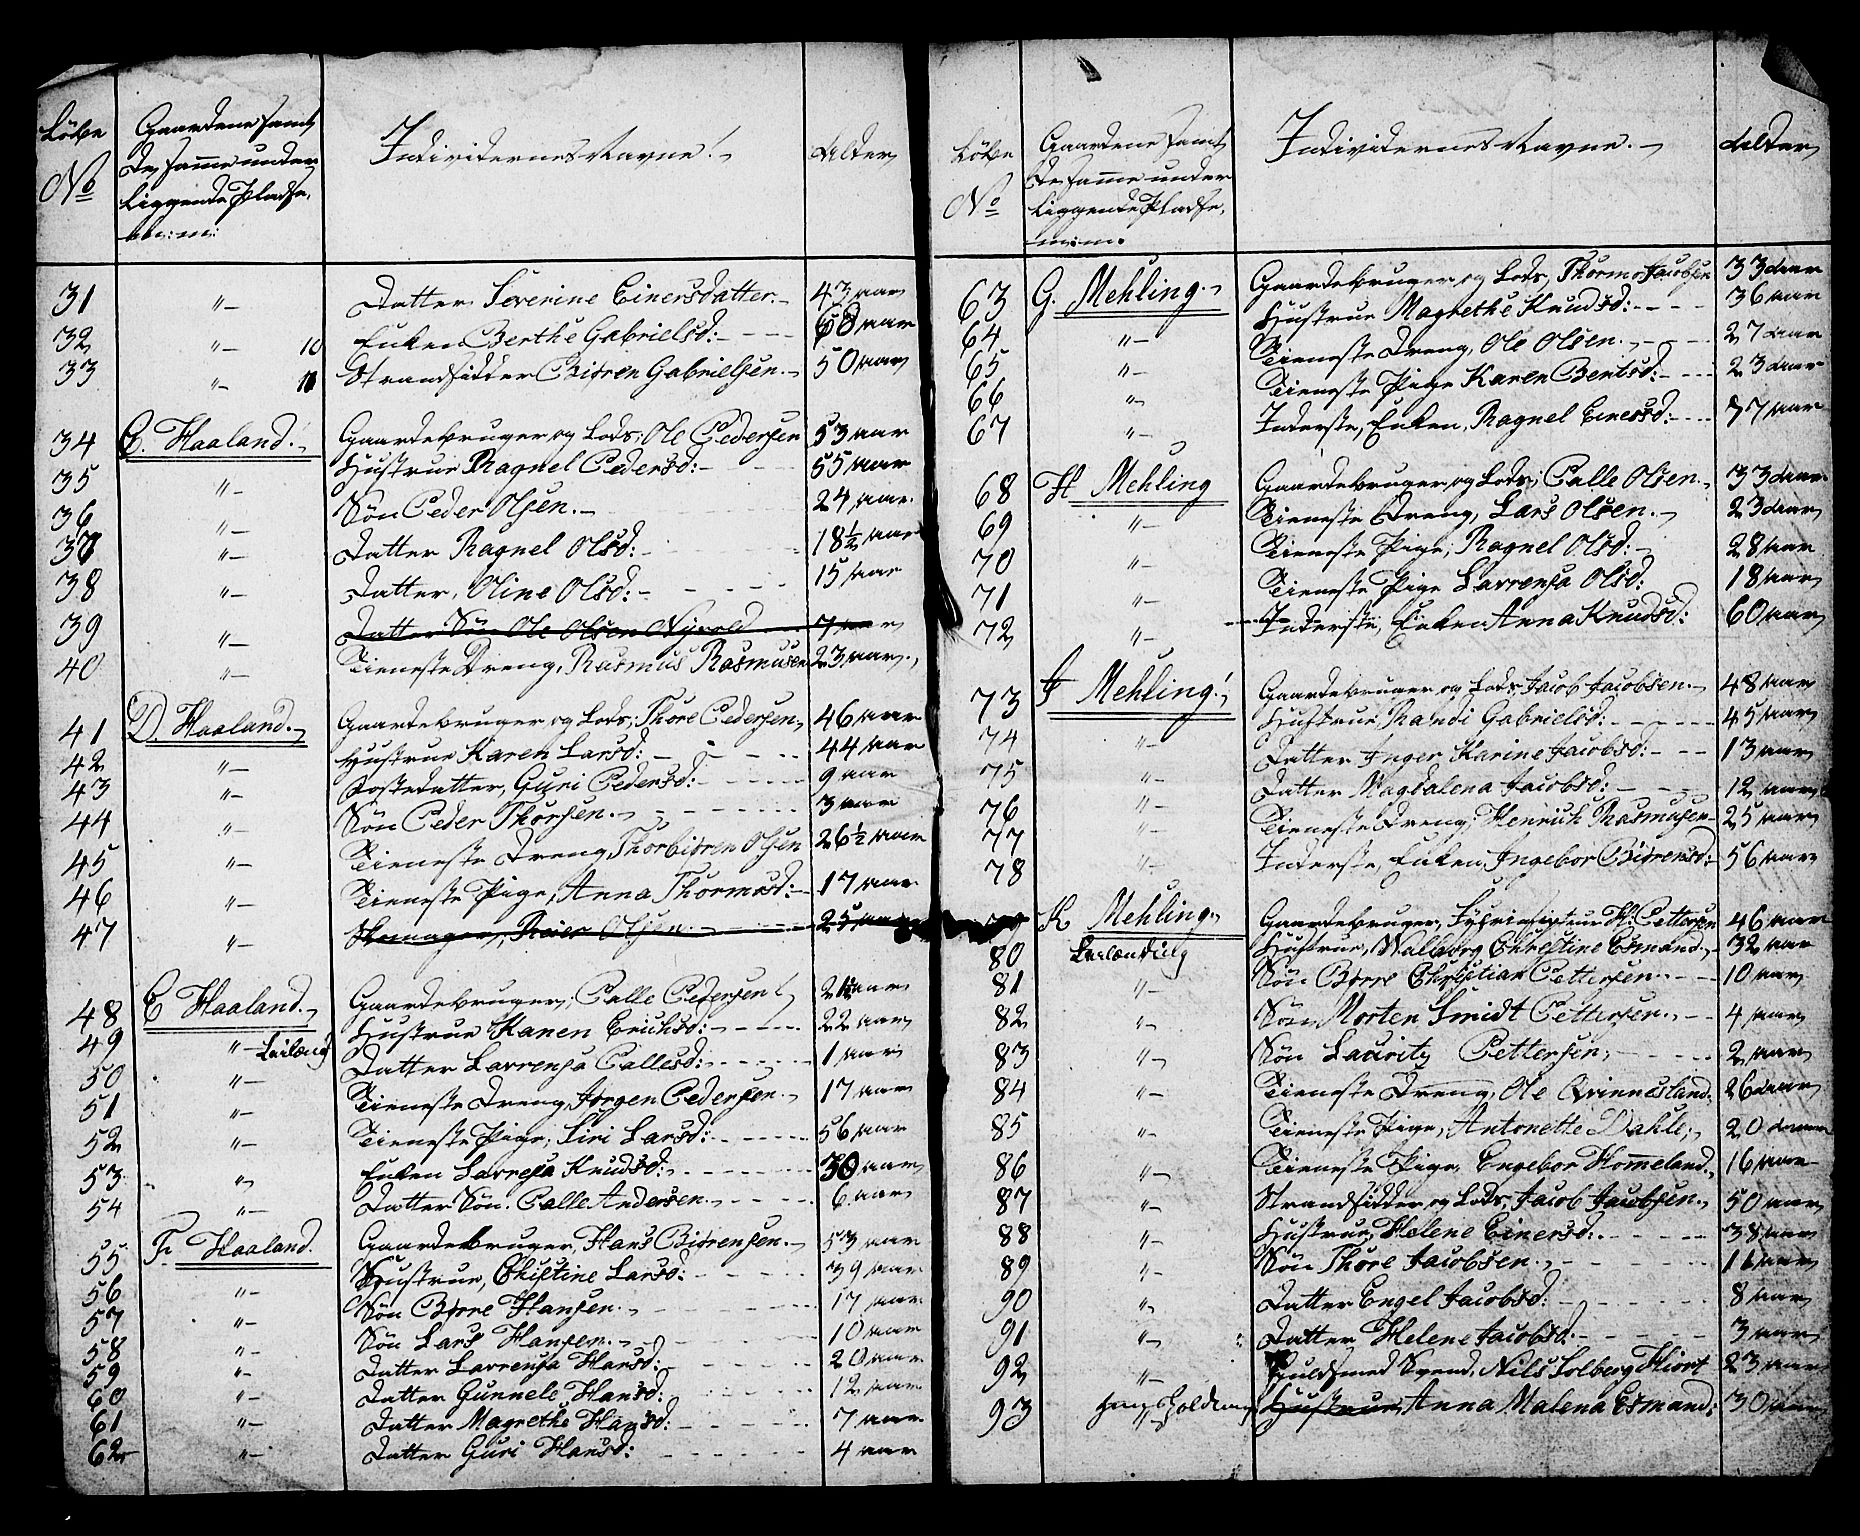 Løbe No
Gaardene samt
de samme under
liggende Pladse,
m: m:
Individernes Navne.
Alder
31 "— Datter Severine Einersdatter. 43 aar
32 "— 10 Enken Berthe Gabrielsd: 60 aar
33 "— Strandsidder Biøren Gabrielsen. 50 aar
34 C. Haaland. Gaardebruger og Lods, Ole Pedersen 53 aar
35 "— Hustrue Ragnel Pedersd: 55 aar
36 "— Søn Peder Olsen. 24 aar
37 "— Datter Ragnel Olsd: 18½ aar
38 "— Datter, Oline Olsd: 15 aar
39 "— Datter Søn Ole Olsen 7 aar
40 "— Tieneste Dreng, Rasmus Rasmusen 23 aar
41 D. Haaland. Gaardebruger og Lods, Thore Pedersen, 46 aar
42 "— Hustrue Karen Larsd: 44 aar
43 "— Fosterdatter, Guri Pedersd: 9 aar
44 "— Søn Peder Thorsen. 3 aar
45 "— Tieneste Dreng, Thorbiøren Olsen 26½ aar
46 "— Tieneste Pige, Anna Thormosd: 17 aar
47 "— Olsen 25 aar
48 E Haaland. Gaardebruger, Calle Pedersen aar
49 "— Hustrue Karen Erichsd: 22 aar
50 "— Datter Lavrensa Callesd: 1 aar
51 "— Tieneste Dreng, Jørgen Pedersen 17 aar
52 "— Tieneste Pige, Siri Larsd: 56 aar
53 " Enken Lavresa Knudsd: 30 aar
54 "— Datter Søn. Calle Andersen. 6 aar
55 F. Haaland. Gaardebruger, Hans Biørensen. 53 aar
56 "— Hustrue, Christine Larsd: 39 aar
57 "— Søn Børre Hansen. 17 aar
58 "— Søn Lars Hansen. 10 aar
59 "— Datter Lavrensa Hansd: 20 aar
60 "— Datter Gunnele Hansd: 12 aar
61 "— Datter Magrethe Hansd: 7 aar
62 "— Datter Guri Hansd: 4 aar
Løbe No
Gaardene samt
de samme under
liggende Pladse,
m: m.
Individernes Navne.
Alder
63 G. Mehling. Gaardebruger og Lods, Thormo Jacobsen 33 aar
64 "— Hustrue Magrethe Knudsd: 36 aar
65 "— Tieneste Dreng, Ole Olsen. 27 aar
66 " Tieneste Pige Karen Bentsd: 23 aar
67 "— Inderste, Enken, Ragnel Einersd: 77 aar
68 H Mehling Gaardebruger og Lods, Calle Olsen. 33 aar
69 "— Tieneste Dreng, Lars Olsen. 23 aar
70 "— Tieneste Pige, Ragnel Olsd: 28 aar
71 "— Tieneste Pige Lavrensa Olsd: 18 aar
72 "— Inderste, Enken Anna Knudsd: 60 aar
73 J Mehling. Gaardebruger og Lods Jacob Jacobsen. 48 aar
74 "— Hustrue Randi Gabrielsd: 45 aar
75 "— Datter Inger Karine Jacobsd: 13 aar
76 "— Datter Magdalena Jacobsd: 12 aar
77 "— Tieneste Dreng, Henrich Rasmusen 25 aar
78 "— Inderste, Enken, Ingebor Biørensd: 56 aar
K Mehling. Gaardebruger, Pettersen 46 aar
80 Hustrue, Walborg Christine Esmand 32 aar
81 "— Søn Børre Christian Pettersen 10 aar
82 "— Søn Morten Smidt Pettersen. 4 aar
83 "— Søn Lauritz Pettersen, 2 aar
84 "— Tieneste Dreng, Ole Qvinnesland. 26 aar
85 "— Tieneste Pige, Antonette Dahle, 20 aar
86 "— Tieneste Pige, Engebor Hommeland. 16 aar
87 "— Strandsidder og Lods, Jacob Jacobsen. 50 aar
88 "— Hustrue, Helene Einersd: 38 aar
89 "— Søn Thore Jacobsen. 11 aar
90 " Datter Engel Jacobsd: 8 aar
91 " Datter Helene Jacobsd: 3 aar
92 "— Guldsmed Svend, Nils Solberg Hiort 23 aar
93 "— Hustrue, Anna Malena Esmand: 30 aar